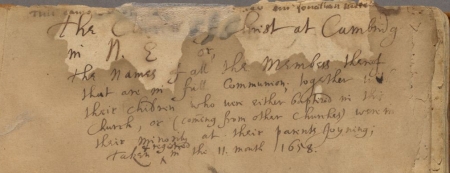 This came
the C Christ at Cambridg
in N. E or,
the Names of all the Members thereof
that are in full Communion, together
their children who were either baptized in this
Church, or (coming from other Churches) were in
their minority at their parents joyning;
taken & registred in the 11. month 1658.